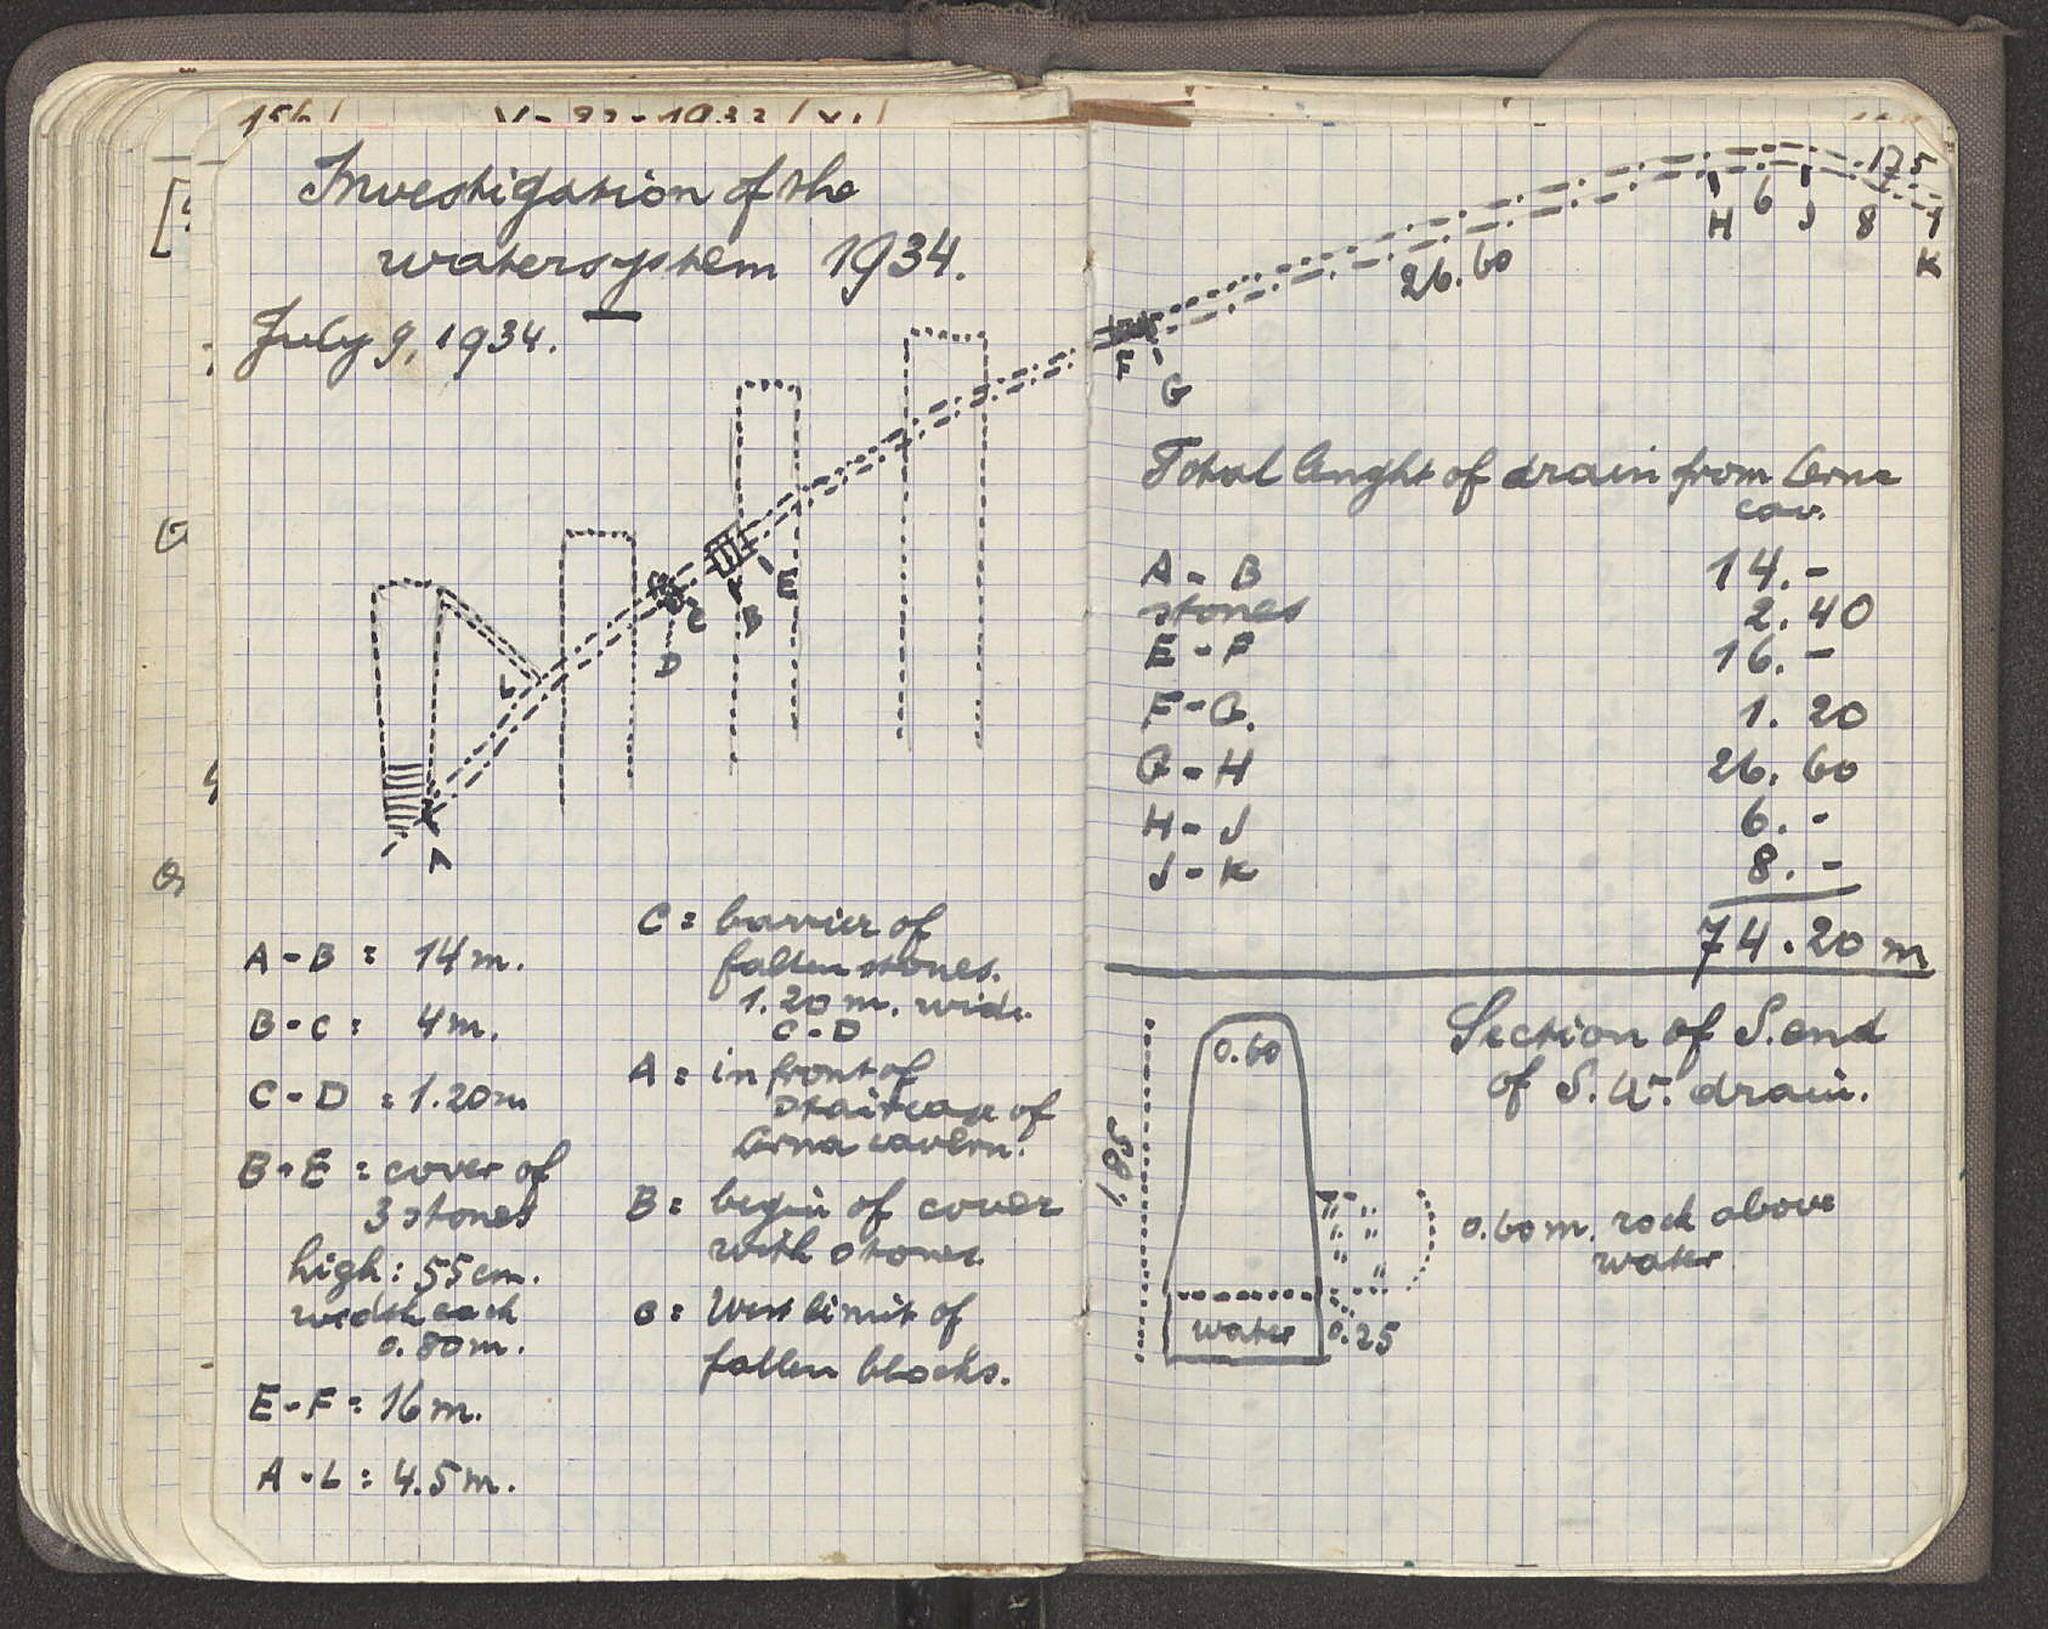 Investigation of the
watersystem 1934.
July 9, 1934.
L
C
D
B
E
A
A-B = 14 m.
B-C = 4 m.
C-D = 1.20 m
B-E = cover of
3 stones
high: 55 cm.
width each
0.80 m.
E-F = 16 m.
A-L = 4.5 m.
C = barrier of
fallen stones.
1.20 m. wide.
C-D
A = in front of
staircase of
Cerna cavern.
B = begin of cover
with stones.
C = West limit of
fallen blocks.
175
H 6 J 8
K
26.60
F
G
Total lenght of drain from Cerna
cav.
A - B 14.-
stones 2.40
E - F 16.-
F - G. 1.20
G - H 26.60
H - J 6.-
J - K 8.-
74.20 m
Section of S. end
of S. drain.
0.60
1.85
0.60 m. rock above
water
water 0.25